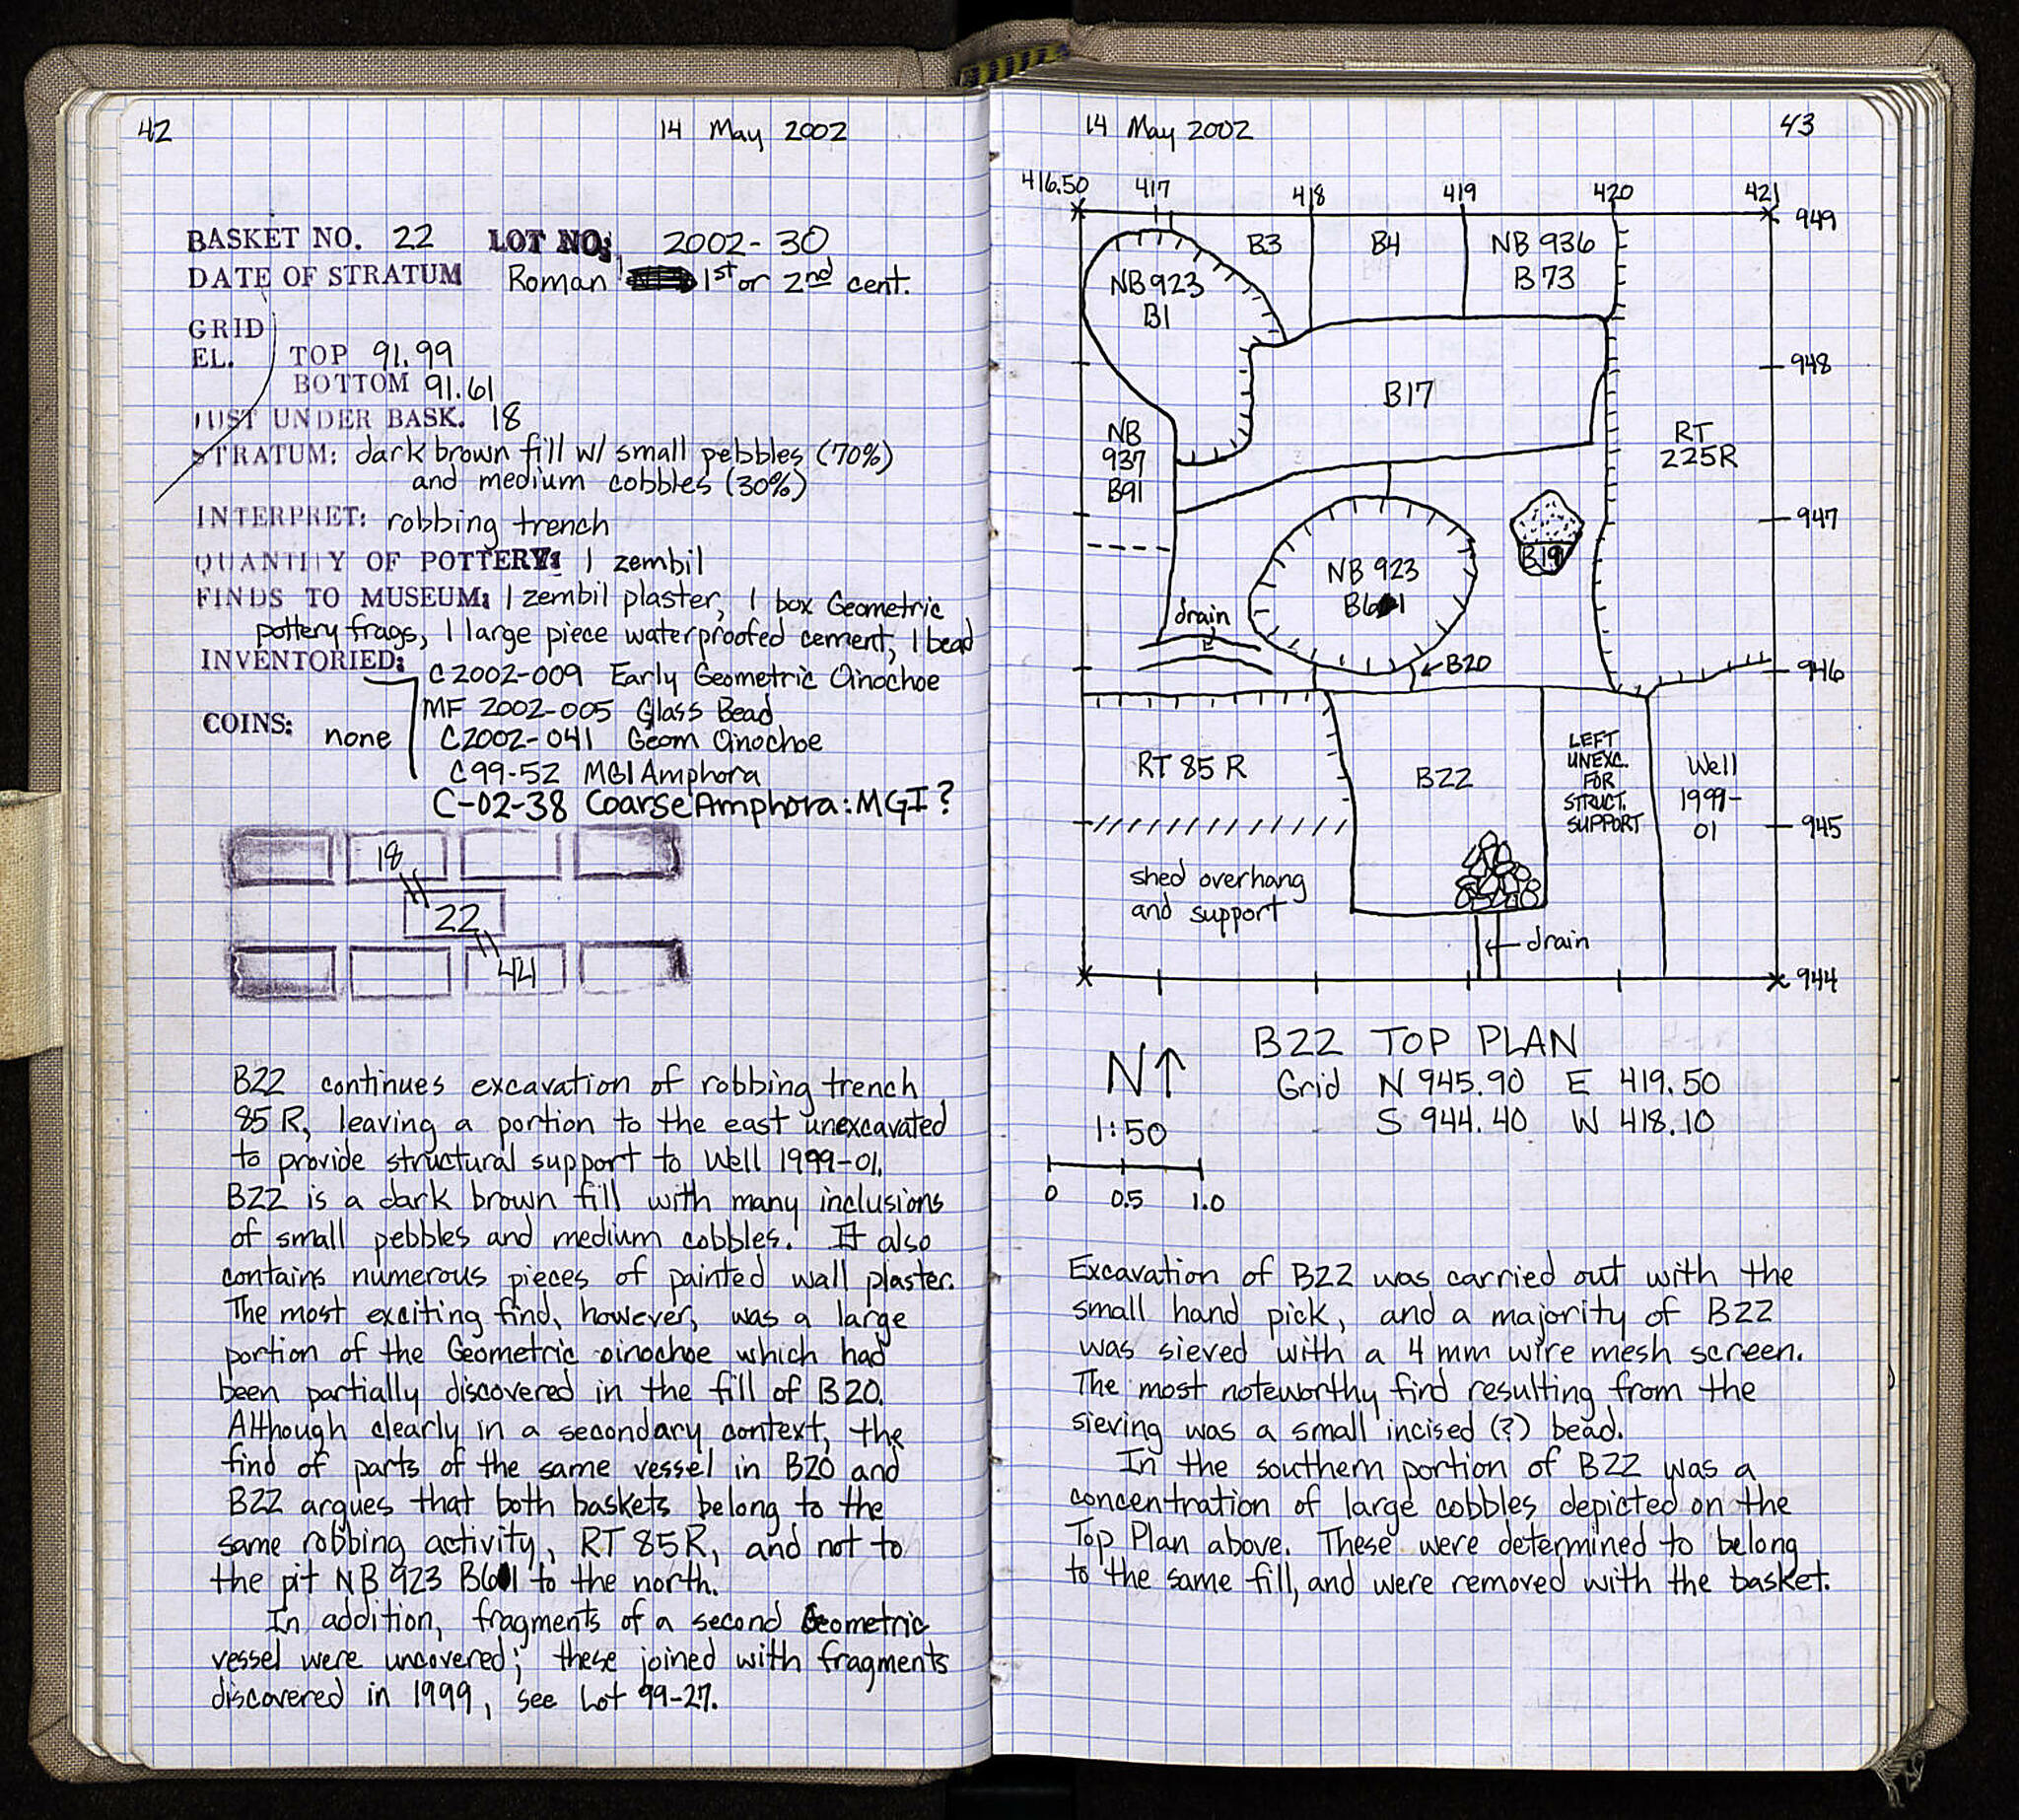 42
14 May 2002
BASKET NO. 22 LOT NO: 2002-30
DATE OF STRATUM Roman 1st or 2nd cent.
GRID
EL. TOP 91.99
BOTTOM 91.61
JUST UNDER BASK. 18
STRATUM: dark brown fill w/ small pebbles (70%)
and medium cobbles (30%)
INTERPRET: robbing trench
QUANTITY OF POTTERY: 1 zembil
FINDS TO MUSEUM: 1 zembil plaster, 1 box Geometric
pottery frags, 1 large piece waterproofed cement, 1 bead
INVENTORIED: C2002-009 Early Geometric Oinochoe
MF 2002-005 Glass Bead
COINS: none C2002-041 Geom Oinochoe
C99-52 MGI Amphora
C-02-38 Coarse Amphora: MGI?
18
22
44
B22 continues excavation of robbing trench
85 R, leaving a portion to the east unexcavated
to provide structural support to Well 1999-01.
B22 is a dark brown fill with many inclusions
of small pebbles and medium cobbles. It also
contains numerous pieces of painted wall plaster.
The most exciting find, however, was a large
portion of the Geometric oinochoe which had
been partially discovered in the fill of B20.
Although clearly in a secondary context, the
find of parts of the same vessel in B20 and
B22 argues that both baskets belong to the
same robbing activity, RT 85R, and not to
the pit NB 923 B61 to the north.
In addition, fragments of a second Geometric
vessel were uncovered; these joined with fragments
discovered in 1999, see Lot 99-27.
14 May 2002
43
416.50 417 418 419 420 421
949
B3 B4 NB 936
B73
NB 923
B1
948
B17
NB
937
B91
RT
225R
947
B19
NB 923
B61
drain
B20
946
RT 85 R
B22
LEFT
UNEXC.
FOR
STRUCT.
SUPPORT
Well
1999-
01
945
shed overhang
and support
drain
944
B22 TOP PLAN
N↑
Grid N 945.90 E 419.50
S 944.40 W 418.10
1:50
0 0.5 1.0
Excavation of B22 was carried out with the
small hand pick, and a majority of B22
was sieved with a 4 mm wire mesh screen.
The most noteworthy find resulting from the
sieving was a small incised (?) bead.
In the southern portion of B22 was a
concentration of large cobbles depicted on the
Top Plan above. These were determined to belong
to the same fill, and were removed with the basket.